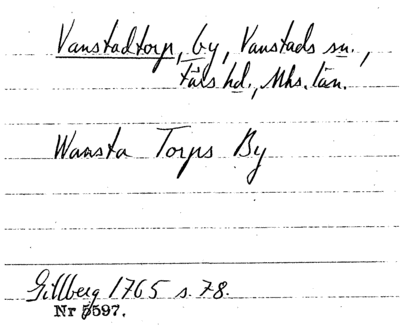 Vanstadtorp, by, Vanstads sn.,
Färs hd., Mhs. län.
Wansta Torps By
Gillberg 1765 s. 78.
Nr 5597.